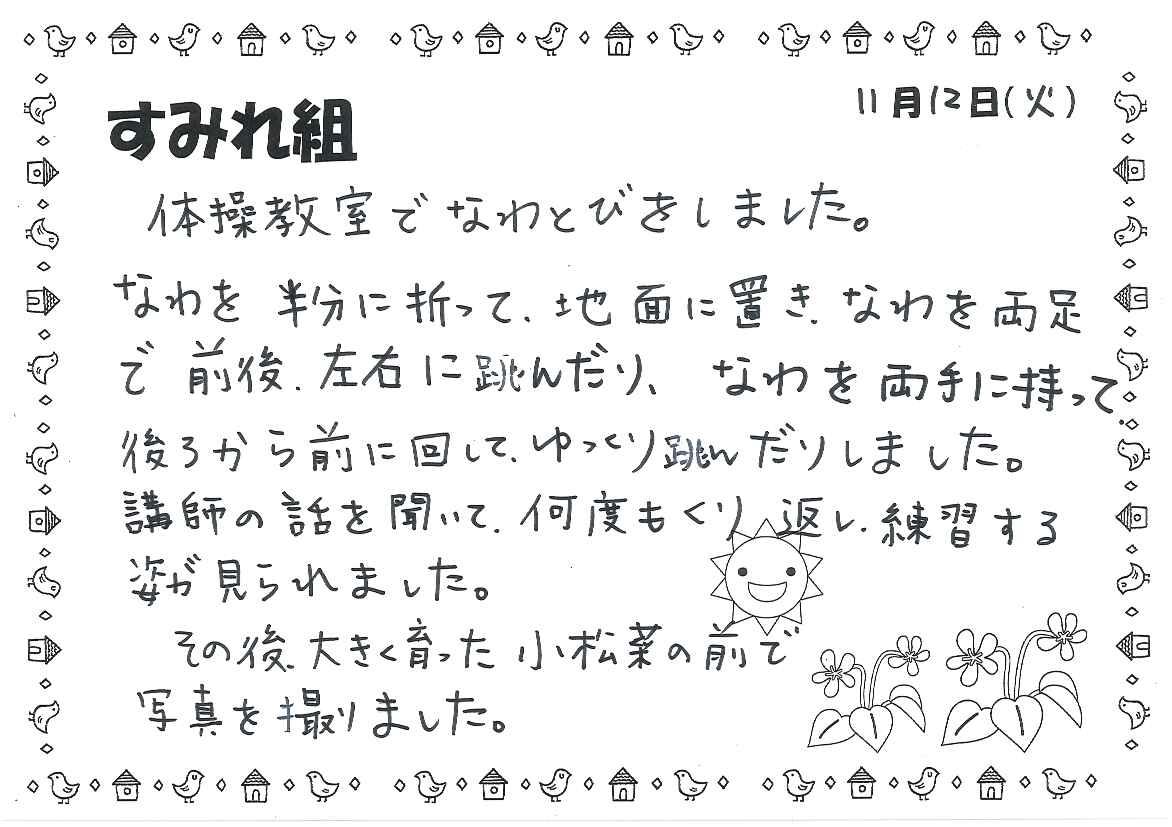 すみれ組
11月12日(火)
体操教室でなわとびをしました。
なわを半分に折って、地面に置き、なわを両足
で前後、左右に跳んだり、なわを両手に持って
後ろから前に回して、ゆっくり跳んだりしました。
講師の話を聞いて、何度もくり返し、練習する
姿が見られました。
その後、大きく育った小松菜の前で
写真を撮りました。